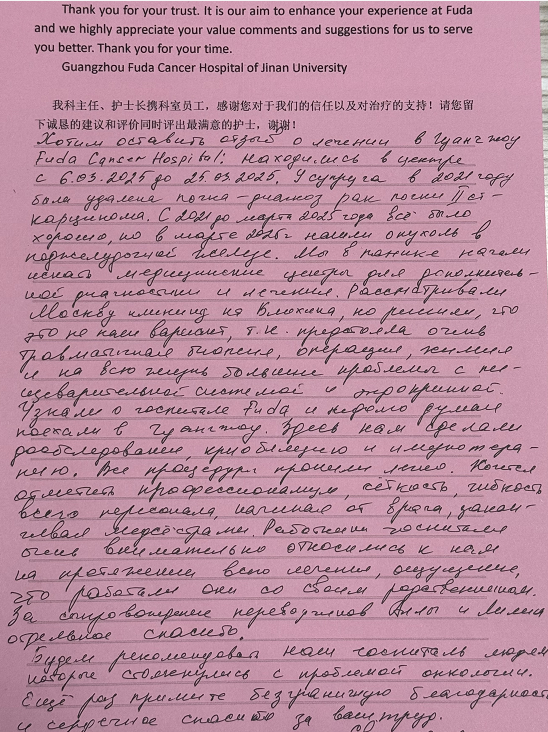 Thank you for your trust. It is our aim to enhance your experience at Fuda
and we highly appreciate your value comments and suggestions for us to serve
you better. Thank you for your time.
Guangzhou Fuda Cancer Hospital of Jinan University
我科主任、护士长携科室员工，感谢您对于我们的信任以及对治疗的支持！请您留
下诚恳的建议和评价同时评出最满意的护士，谢谢！
Хотим оставить отзыв о лечении в Гуангжоу
Fuda Cancer Hospital: находились в центре
с 6.03.2025 до 25.03.2025. У супруга в 2021 году
была удалена почка – диагноз рак почки II ст –
карцинома. С 2021 до марта 2025 года всё было
хорошо, но в марте 2025г нашли опухоль в
поджелудочной железе. Мы в панике начали
искать медицинские центры для дополнитель-
ной диагностики и лечения. Рассматривали
Москву клинику Блохина, но решили, что
это не наш вариант, т.к. предстояла очень
травматичная биопсия, операция, химия
и на всю жизнь большие проблемы с пи-
щеварительной системой и эндокринной.
Узнали о госпитале Fuda и недолго думая
поехали в Гуангжоу. Здесь нам сделали
дообследование, криоабляцию и имунотера-
пию. Все процедуры прошли легко. Хочется
отметить профессионализм, чёткость, гибкость
всего персонала, начиная от врача, закан-
чивая медсёстрами. Работники госпиталя
очень внимательно относились к нам
на протяжении всего лечения, ощущение,
что работали они со своим родственником.
За сопровождение переводчиков и
отдельное спасибо.
Будем рекомендовать госпиталь людям
которые столкнулись с проблемой онкологии.
Ещё раз примите безграничную благодарность
и сердечное спасибо за ваш труд.